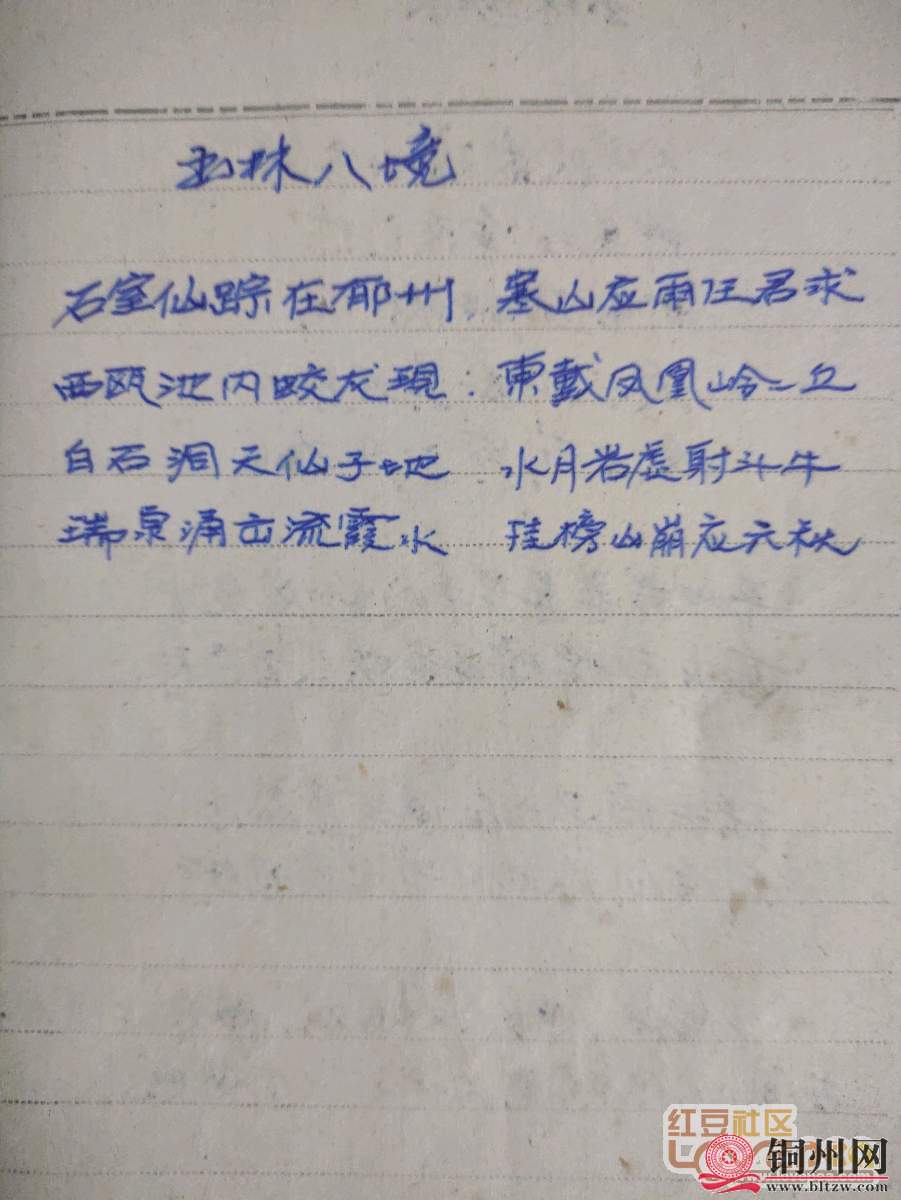 玉林八境
石室仙踪在郁州 寒山应雨任君求
西瓯池内蛟龙現. 東戴凤凰岭一丘
白石洞天仙子地 水月岩虚射斗牛
瑞泉涌出流霞水 挂榜山崩应六秋
红豆社区
铜州网
www.bltzw.com